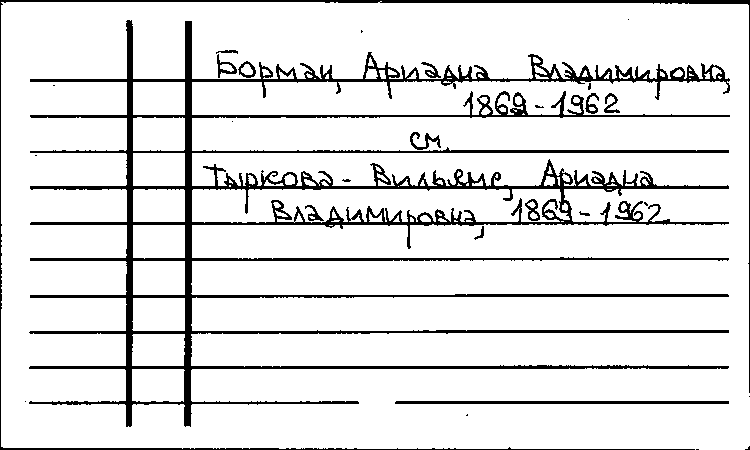 Борман, Ариадна Владимировна,
1869-1962
см.
Тыркова-Вильямс, Ариадна
Владимировна, 1869-1962